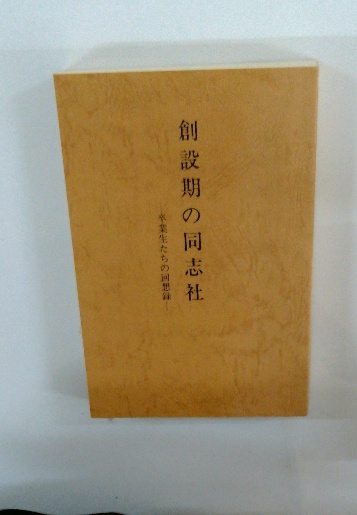 創設期の同志社
―卒業生たちの回想録―